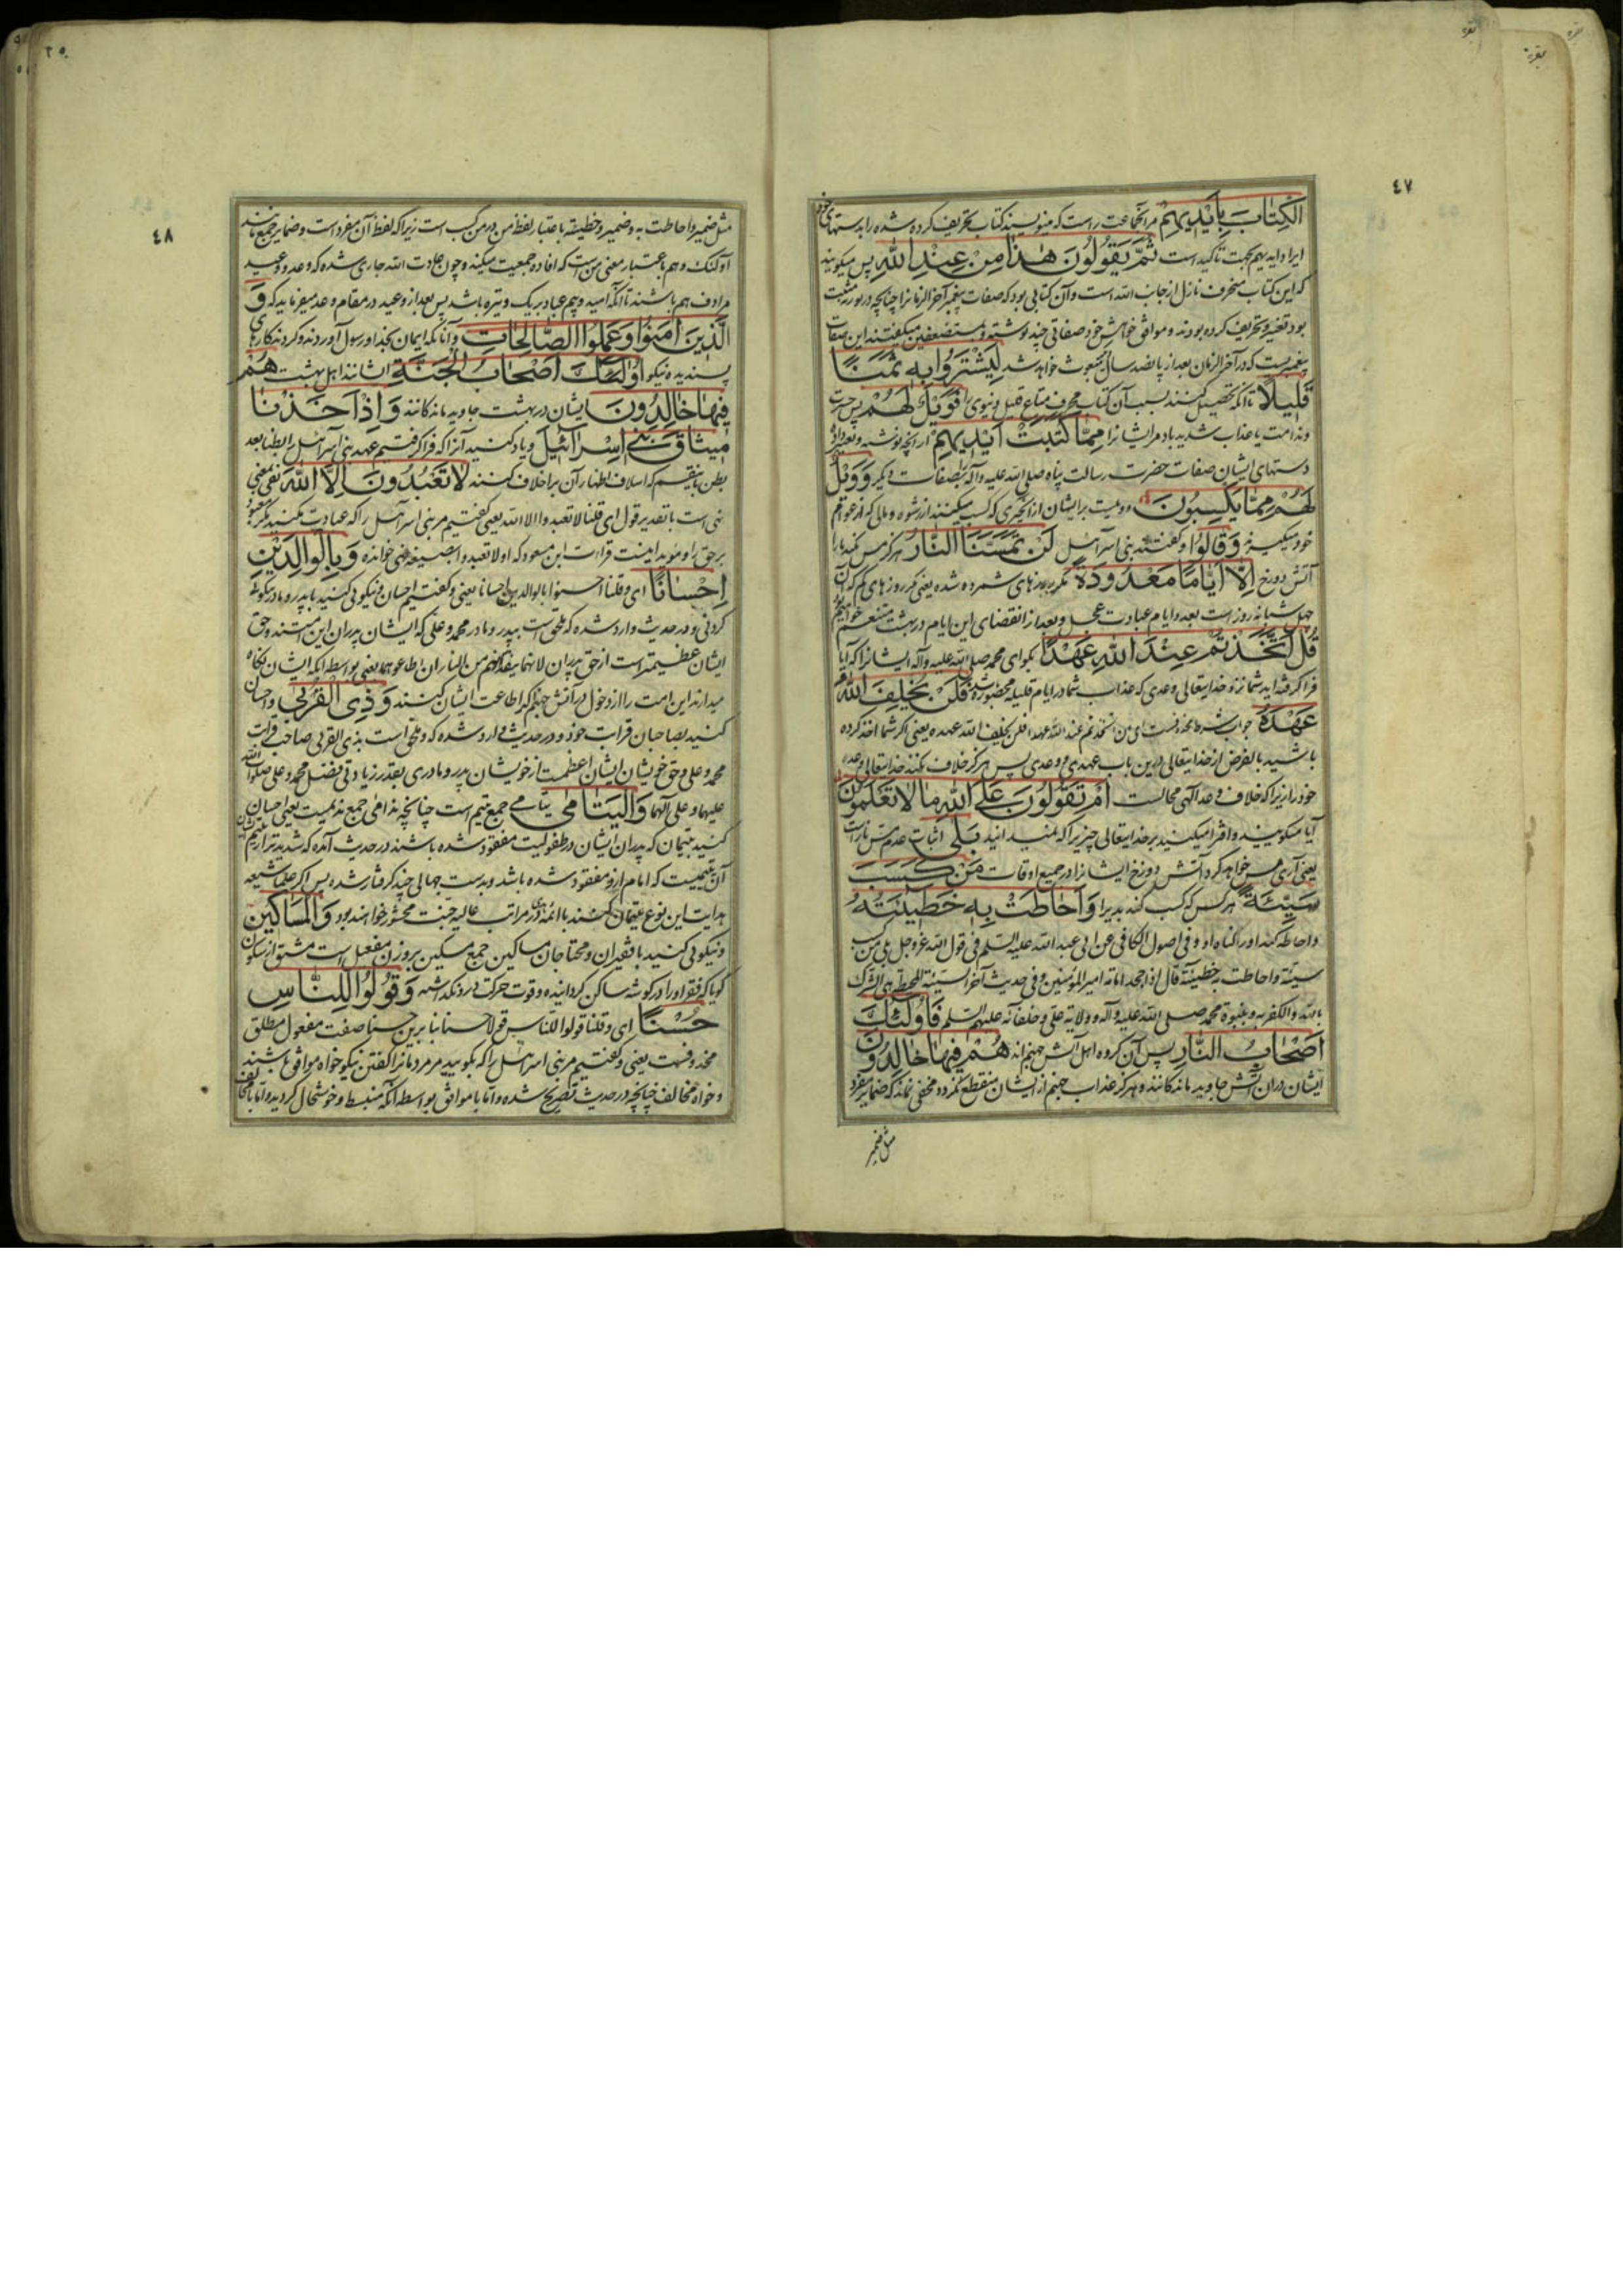 بقره
٤٧
الْكِتَابَ بِأَيْدِيهِمْ مر آنجماعت راست که مینویسند کتاب تحریف کرده شده را بدستهای خود
ایراد ایدیهم بجهت تاکید است ثُمَّ يَقُولُونَ هٰذَا مِنْ عِنْدِ اللهِ پس میکویند
که این کتاب محرف نازل از جانب الله است و آن کتابی بود که صفات پیغمبر آخر الزمانرا چنانچه در توریة مثبت
بود تغیر و تحریف کرده بودند و موافق خواهش خود صفاتی چند نوشته و بمستضعفین میکفتند این صفات
پیغمبریست که در آخر الزمان بعد از پانصد سال مبعوث خواهد شد لِيَشْتَرُوا بِهِ ثَمَنًا
قَلِيلًا تا آنکه تحصیل کنند بسبب آن کتاب محرف متاع قلیل دنیوی را فَوَيْلٌ لَهُمْ پس حسرت
و ندامت با عذاب شدید باد مر ایشانرا مِمَّا كَتَبَتْ أَيْدِيهِمْ از آنچه نوشته و تغییر داده
دستهای ایشان صفات حضرت رسالت پناه صلی الله علیه و آله را بصفات دیکر وَوَيْلٌ
لَهُمْ مِمَّا يَكْسِبُونَ و ویلست بر ایشان از آنچیزی که کسب میکنند از رشوه و مالی که از عوام
خود میکیرند وَقَالُوا و کفتند بنی اسرآئیل لَنْ تَمَسَّنَا النَّارُ هرکز مس نکند ما را
آتش دوزخ إِلَّا أَيَّامًا مَعْدُودَةً مکر روزهای شمرده شده یعنی مکر روزهای کم که آن
چهل شبانه روز است بعدد ایام عبادت عجل و بعد از انقضای این ایام در بهشت متنعم خواهیم بود
قُلْ أَتَّخَذْتُمْ عِنْدَ اللهِ عَهْدًا بکو ای محمد صلی الله علیه و آله ایشانرا که آیا
فرا کرفته اید شما نزد خدایتعالی وعدی که عذاب شما در ایام قلیله محصوره باشد فَلَنْ يُخْلِفَ اللهُ
عَهْدَهُ جواب شرط محذوفست ای ان اتخذتم عند الله عهدا فلن یخلف الله عهده یعنی اکر شما اخذ کرده
باشید بالفرض از خدایتعالی درین باب عهدی و وعدی پس هرکز خلاف نکند خدایتعالی وعده
خود را زیرا که خلاف وعد الهی محالست أَمْ تَقُولُونَ عَلَى اللهِ مَا لَا تَعْلَمُونَ
آیا میکویید و افترا میکنید بر خدایتعالی چیزیرا که نمیدانید بَلٰى اثبات عدم مس نار است
یعنی آری مس خواهد کرد آتش دوزخ ایشانرا در جمیع اوقات مَنْ كَسَبَ
سَيِّئَةً هر کس که کسب کند بدیرا وَأَحَاطَتْ بِهِ خَطِيئَتُهُ
و احاطه کند او را کناه او و فی اصول الکافی عن ابی عبد الله علیه السلم فی قول الله عز و جل بلی من کسب
سیئة و احاطت به خطیئته قال اذا جحد امامة امیر المؤمنین و فی حدیث آخر السیئة المحیطة هی الشرک
بالله و الکفر به و بنبوة محمد صلی الله علیه و آله و ولایة علی و خلفائه علیهم السلم فَأُولٰئِكَ
أَصْحَابُ النَّارِ پس آن کروه اهل آتش جهنم اند هُمْ فِيهَا خَالِدُونَ
ایشان در آن آتش جاوید ماندکانند و هرکز عذاب جهنم از ایشان منقطع نکردد و مخفی نماند که ضمایر مفرد
مثل ضمیر
٤٨
مثل ضمیر و احاطت به و ضمیر و خطیئته باعتبار لفظ من در من کسب است زیرا که لفظ آن مفرد است و ضمایر جمع مانند
اولئک و هم باعتبار معنی من است که افاده جمعیت میکند و چون عادت الله جاری شده که وعد و وعید
مرادف هم باشند تا آنکه امید و بیم عباد بر یک وتیره باشد پس بعد از وعید در مقام وعد میفرماید که وَ
الَّذِينَ آمَنُوا وَعَمِلُوا الصَّالِحَاتِ و آنانکه ایمان بخدا و رسول آوردند و کردند کارهای
پسندیده نیکو أُولٰئِكَ أَصْحَابُ الْجَنَّةِ ایشانند اهل بهشت هُمْ
فِيهَا خَالِدُونَ ایشان در بهشت جاوید ماندکانند وَإِذْ أَخَذْنَا
مِيثَاقَ بَنِي إِسْرَائِيلَ و یاد کنید آنرا که فرا کرفتیم عهد بنی اسرآئیل را بطنا بعد
بطن که اسلاف اظهار آن بر اخلاف کنند لَا تَعْبُدُونَ إِلَّا اللهَ نفی بمعنی
نهی است با تقدیر قول ای قلنا لا تعبدوا الا الله یعنی کفتیم مر بنی اسرآئیل را که عبادت مکنید مکر معبود
بر حق را و مؤید اینست قراءت ابن مسعود که او لا تعبدوا بصیغه نهی خوانده وَبِالْوَالِدَيْنِ
إِحْسَانًا ای و قلنا احسنوا بالوالدین احسانا یعنی و کفتیم احسان و نیکویی کنید با پدر و مادر نیکویی
کردنی و در حدیث وارد شده که ملحق است بپدر و مادر محمد و علی که ایشان پدران این امتند و حق
ایشان عظیمتر است از حق پدران لانهما ینقذانهم من النار ان اطاعوهما یعنی بواسطه آنکه ایشان نکاه
میدارند این امت را از دخول در آتش جهنم اکر اطاعت ایشان کنند وَذِي الْقُرْبٰى و احسان
کنید بصاحبان قرابت خود و در حدیث وارد شده که ملحق است بذی القربی صاحب قرابت
محمد و علی و حق خویشان ایشان اعظمست از خویشان پدر و مادری بقدر زیادتی بفضل محمد و علی صلوات الله
علیهما و علی آلهما وَالْيَتَامٰى یتامی جمع یتیم است چنانچه ندامی جمع ندیمست یعنی احسان
کنید بیتیمان که پدران ایشان در طفولیت مفقود شده باشند و در حدیث آمده که شدیدتر از یتیم
آن یتیمیست که امام او از او مفقود شده باشد و بدست جهالی چند کرفتار شده پس اکر علمای شیعه
هدایت این نوع یتیمان کنند با ائمه هدی در مراتب عالیه جنت محشور خواهند بود وَالْمَسَاكِينِ
و نیکویی کنید با فقیران و محتاجان مساکین جمع مسکین بر وزن مفعیل است مشتق از سکون
کویا که فقر او را در کوشه ساکن کردانیده و قوت حرکت در او نکذاشته وَقُولُوا لِلنَّاسِ
حُسْنًا ای و قلنا قولوا للناس قولا حسنا بنا برین حسنا صفت مفعول مطلق
محذوفست یعنی و کفتیم مر بنی اسرآئیل را که بکویید مر مردمانرا کفتن نیکو خواه موافق باشند
و خواه مخالف چنانچه در حدیث تصریح شده و اما با موافق بواسطه آنکه منبسط و خوشحال کردید و اما با مخالف